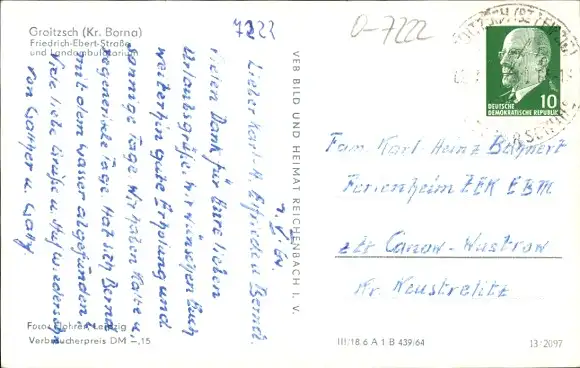 Groitzsch (Kr. Borna)
Friedrich-Ebert-Straße
und Landambulatorium
7222
0-7222
7. 7. 64.
Lieber Karl-H. Elfriede u. Bernd.
Vielen Dank für Eure lieben
Urlaubsgrüße. Wir wünschen Euch
weiterhin gute Erholung und
sonnige Tage. Wir haben kalte u.
regnerische Tage. Hat sich Bernd
mit dem Wasser abgefunden?
Viele liebe Grüße u. Auf Wiedersehn
von Walther u.
Foto: Dohren, Leipzig
Verbraucherpreis DM -,15
VEB BILD UND HEIMAT REICHENBACH I. V.
DEUTSCHE
DEMOKRATISCHE REPUBLIK
10
Fam. Karl Heinz
Ferienheim ZEK EBM
Canow-Wustrow
Kr. Neustrelitz
III/18.6 A 1 B 439/64
13-2097